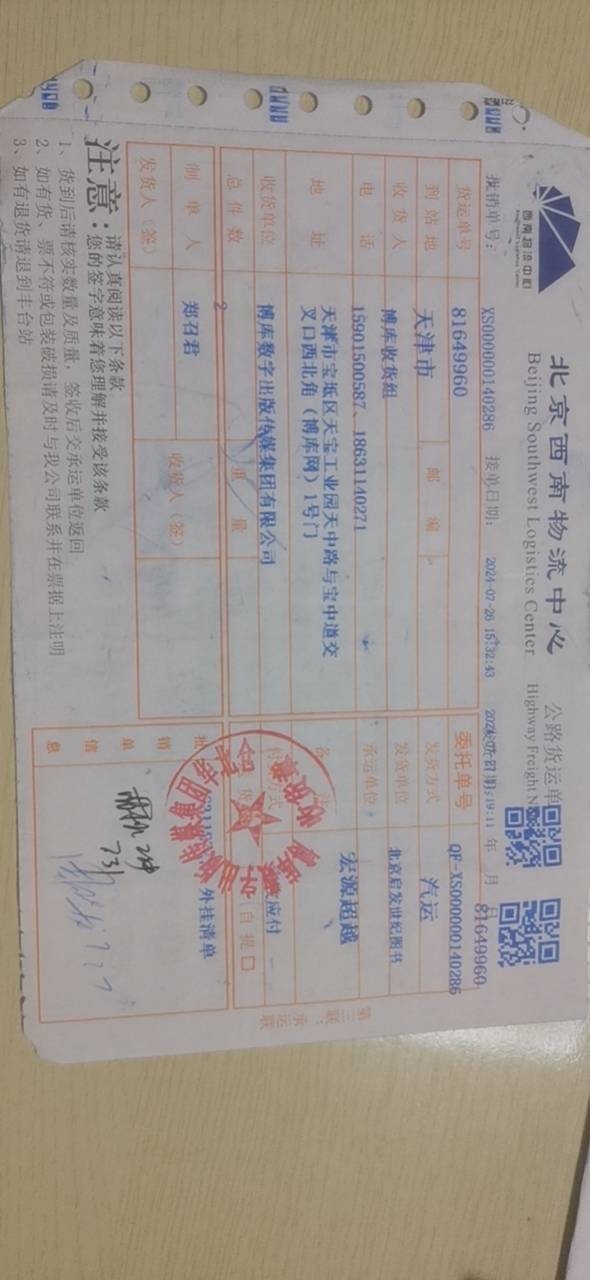 西南物流中心
北京西南物流中心
公路货运单
Beijing Southwest Logistics Center
Highway Freight N
批销单号: XS000000140286
接单日期: 2024-07-26 15:32:43
年 月 日
81649960
货运单号 81649960
委托单号 QF-XS0000000140286
到站地 天津市 邮编
发货方式 汽运
收货人 博库收货组
发货单位 北京启发世纪图书
电话 15901500587、18631140271
承运单位 宏源超越
地址 天津市宝坻区天宝工业园天中路与宝中道交
叉口西北角（博库网）1号门
收货单位 博库数字出版传媒集团有限公司
付 方式 应付
总件数 2 重量
自提口
制单人 郑召君 收货人（签）
发货人（签）
批销单信息 外挂清单
注意:
请认真阅读以下条款
您的签字意味着您理解并接受该条款
1、货到后请核实数量及质量，签收后交承运单位返回
2、如有货、票不符或包装破损请及时与我公司联系并在票据上注明
3、如有退货请退到丰台站
第三联：承运联